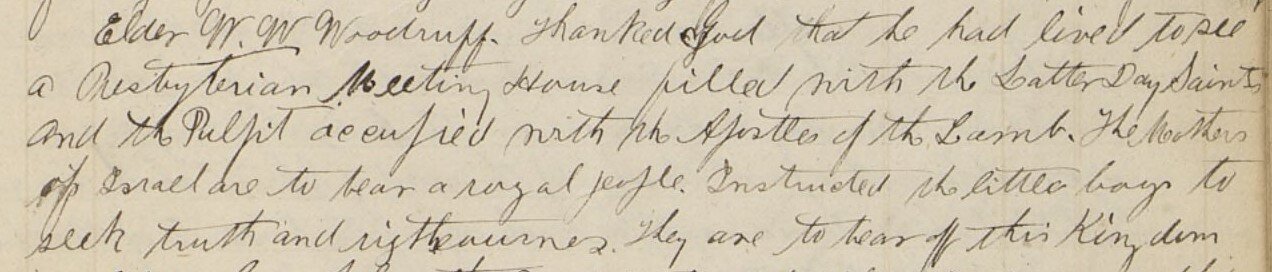 Elder W. W Woodruff. Thanked God that he had lived to see
a Presbyterian Meeting House filled with the Latter Day Saints
and the Pulpit accupied with the Apostles of the Lamb. The Mothers
of Israel are to bear a royal people. Instructed the little boys to
seek truth and rigtheournes. They are to bear off this Kingdom